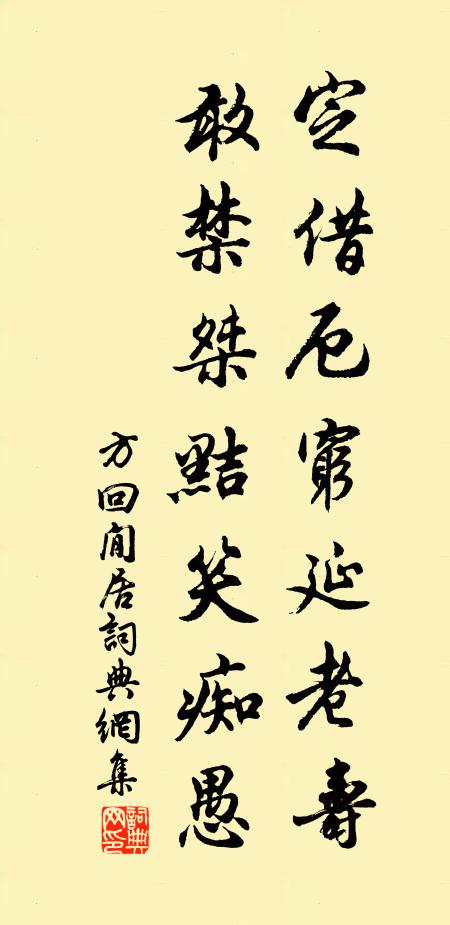 定借厄窮延老壽
敢禁桀黠笑痴愚
方回閒居詞典網集
詞典网印